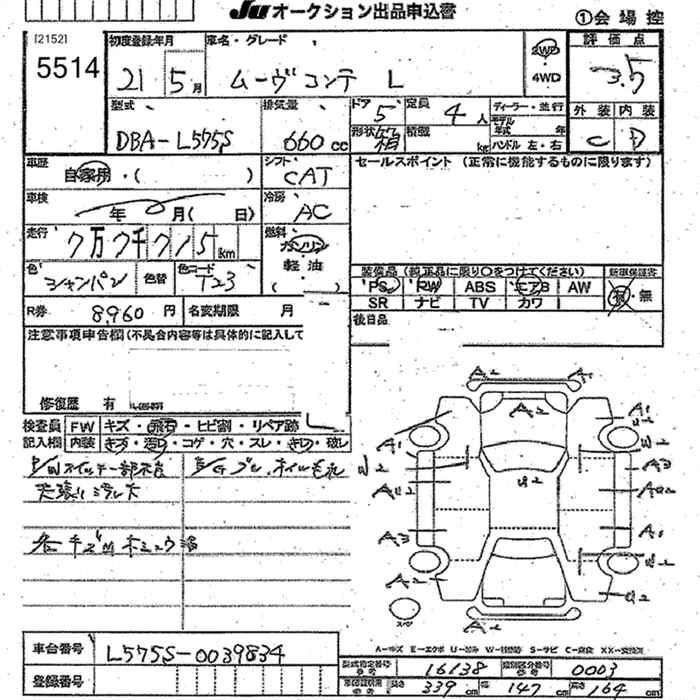 JU オークション出品申込書
①会場控
[2152]
5514
初度登録年月
21 5月
車名・グレード
ムーヴコンテ L
2WD
4WD
評価点
3.5
型式
DBA-L575S
排気量
660cc
ドア 5
定員 4人
形状 箱
積載 kg
ディーラー・並行
モデル年式 年
ハンドル 左・右
外装 内装
C D
車歴
自家用・( )
シフト
CAT
セールスポイント (正常に機能するものに限ります)
車検
年 月( 日)
冷房
AC
走行
7万7千715km
燃料
ガソリン
軽油
( )
色
シャンパン
色替
色コード
T23
装備品(純正品に限り○をつけてください)
新車保証書
PS PW ABS エアB AW
SR ナビ TV カワ
有・無
R券 8,960円
名変期限 月
後日品
注意事項申告欄(不具合内容等は具体的に記入して
修復歴 有
検査員記入欄
FW キズ・飛石・ヒビ割・リペア跡
内装 キズ・汚れ・コゲ・穴・スレ・キレ・破レ
P/Wスイッチ一部不良
天張り
A2 A1
A2
A1 A1
W2 W2
U2
A3
AU2
A1
A3
A2
W2
U2
A2
A-キズ E-エクボ U-凹み W-補修跡 S-サビ C-腐食 XX-交換済
車台番号 L575S-0039834
登録番号
型式指定番号 参考 16138
類別区分番号 参考 0003
車両証明用 参考 長さ 339cm 幅 147cm 高さ 164cm